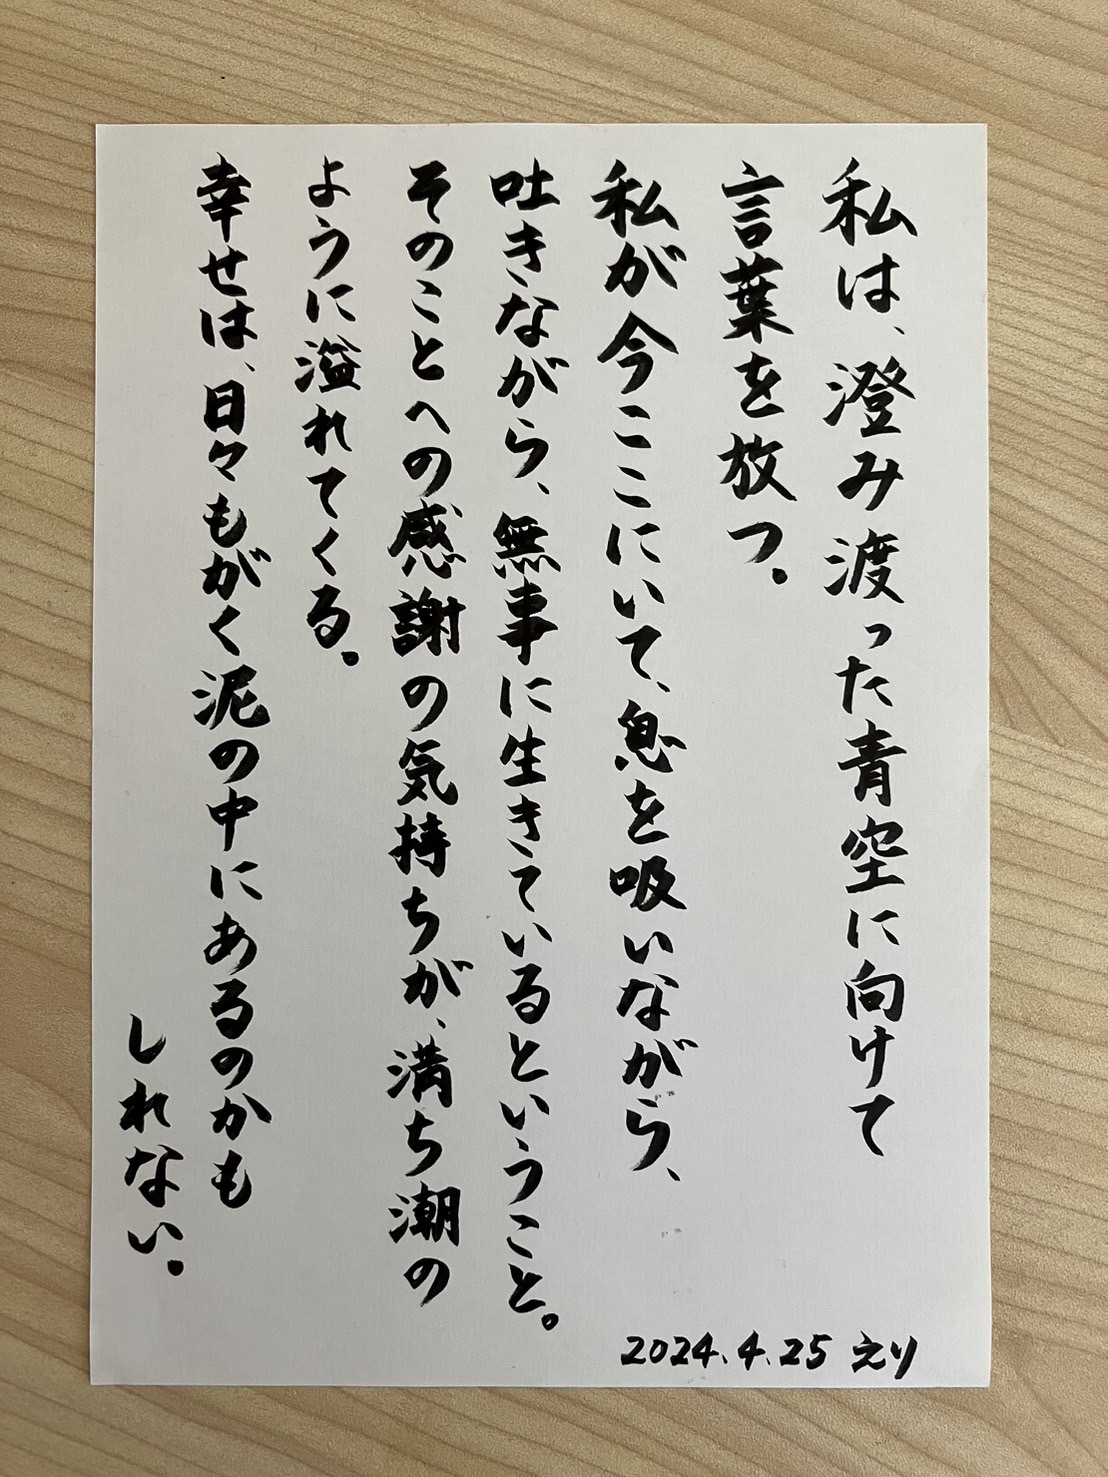 私は、澄み渡った青空に向けて
言葉を放つ。
私が今ここにいて、息を吸いながら、
吐きながら、無事に生きているということ。
そのことへの感謝の気持ちが、満ち潮の
ように溢れてくる。
幸せは、日々もがく泥の中にあるのかも
しれない。
2024.4.25 えり